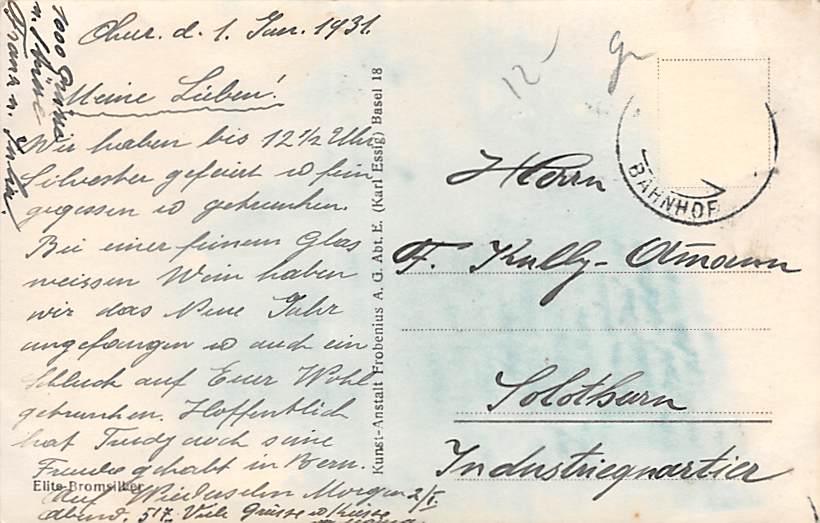 Chur. d. 1. Jan. 1931.
Meine Lieben!
Wir haben bis 12 1/2 Uhr
Silvester gefeiert u fein
gegessen u getrunken.
Bei einer feinem Glas
weissen Wein haben
wir das Neue Jahr
angefangen u auch ein
Schluck auf Euer Wohl
getrunken. Hoffentlich
hat Trudy auch seine
Freude gehabt in Bern.
Auf Wiedersehn Morgen 2/I
Abend. 517. Viele Grüsse u Küsse
1000 Grüsse
Elite-Bromsilber
Kunst-Anstalt Frobenius A. G. Abt. E. (Karl Essig) Basel 18
12
BAHNHOF
Herrn
F. Kully-
Solothurn
Industriequartier